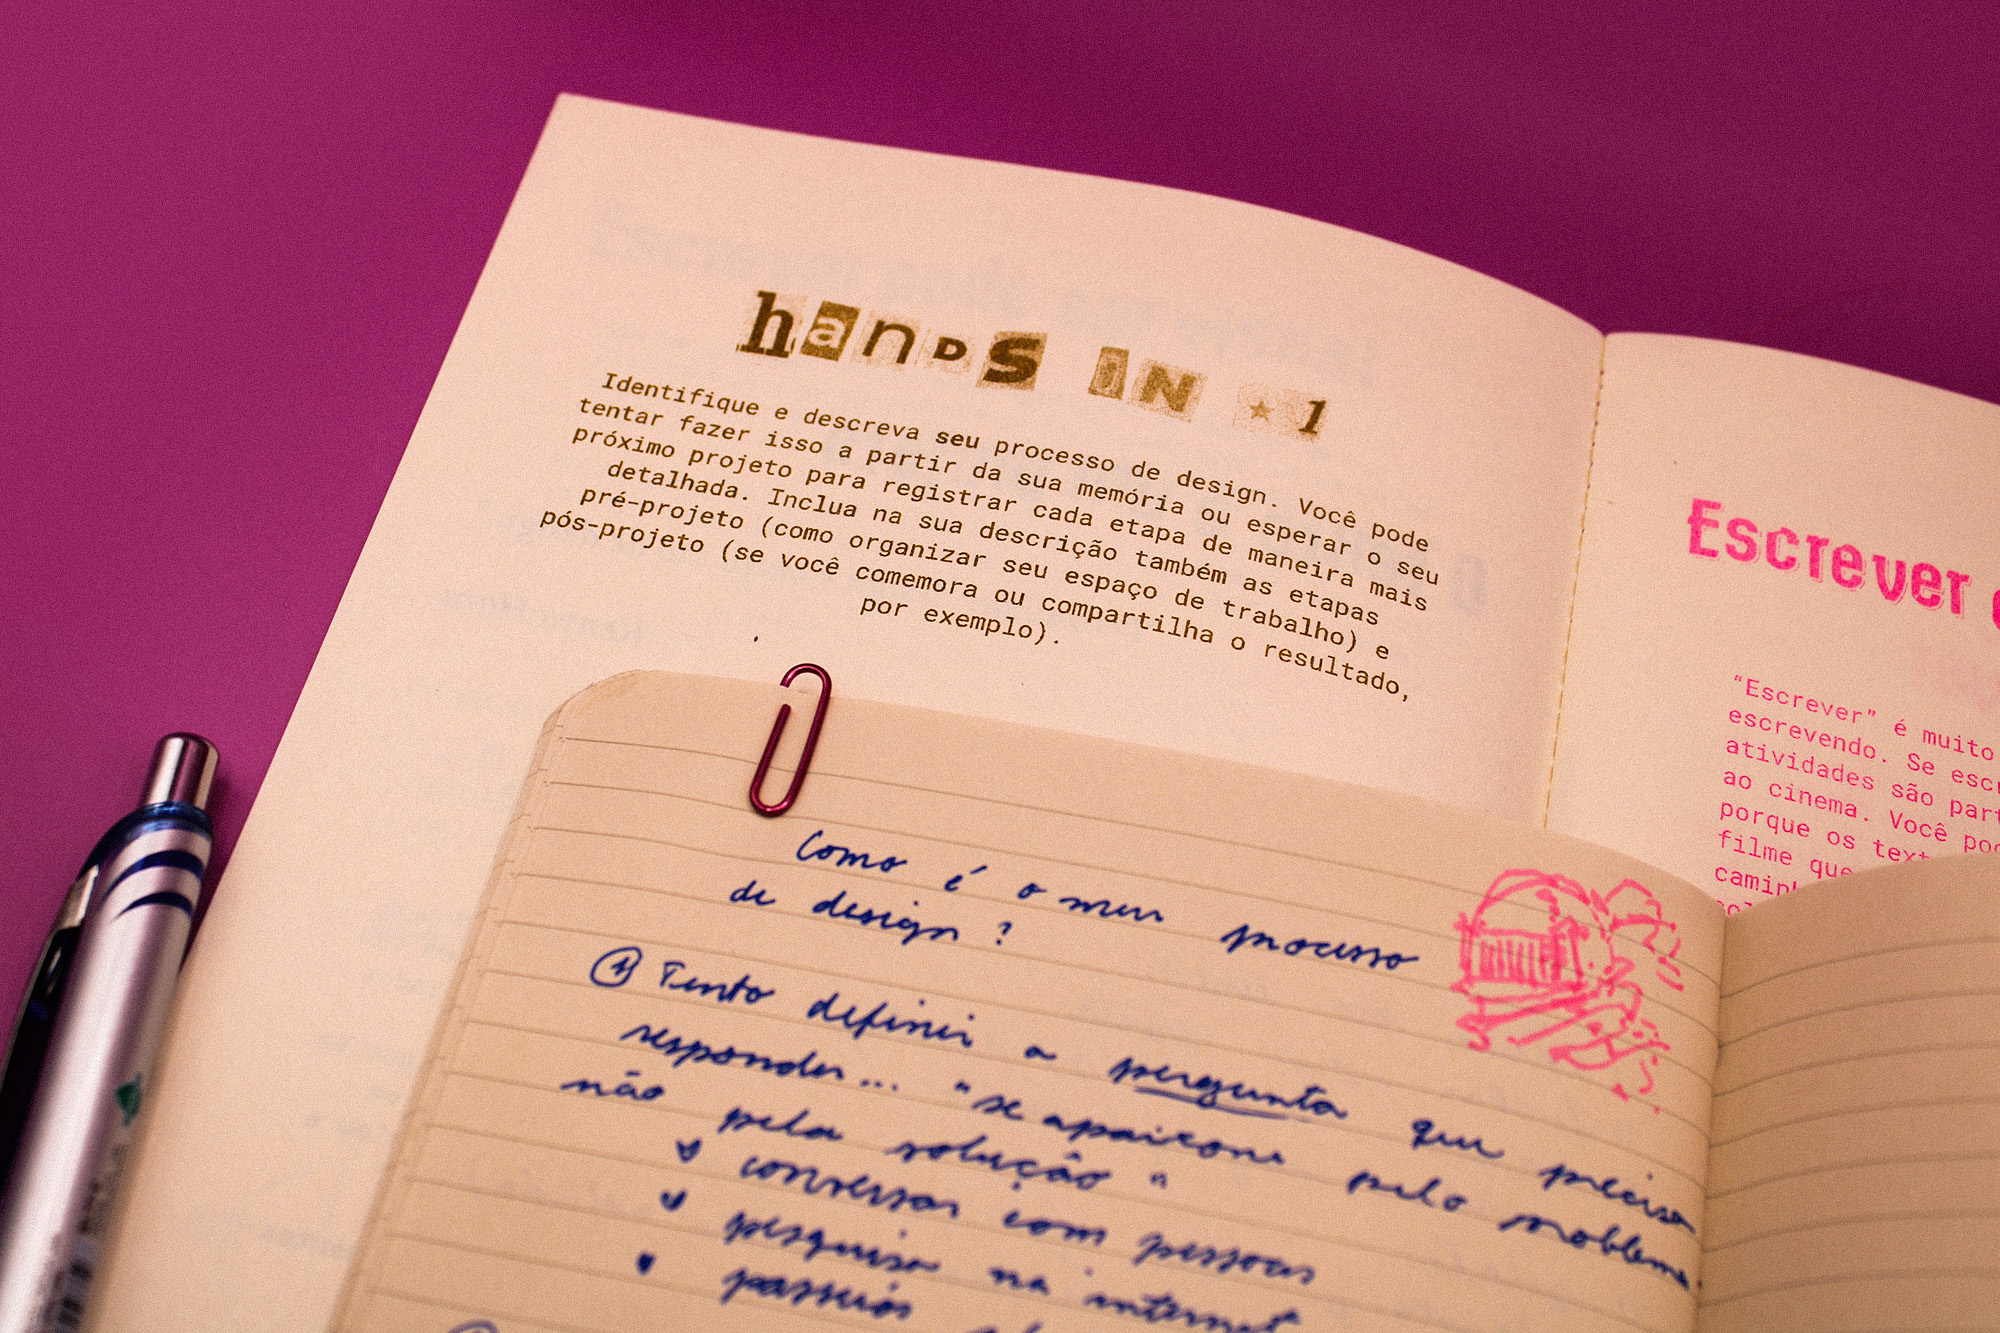 hands in ★ 1
Identifique e descreva seu processo de design. Você pode
tentar fazer isso a partir da sua memória ou esperar o seu
próximo projeto para registrar cada etapa de maneira mais
detalhada. Inclua na sua descrição também as etapas
pré-projeto (como organizar seu espaço de trabalho) e
pós-projeto (se você comemora ou compartilha o resultado,
por exemplo).
Como é o meu processo
de design?
1 Tento definir a pergunta que preciso
responder... "se apaixone pelo problema,
não pela solução"
conversas com pessoas
pesquisa na internet
passeios
Escrever
"Escrever" é muito
escrevendo. Se
atividades são
ao cinema. Você
porque os
filme que